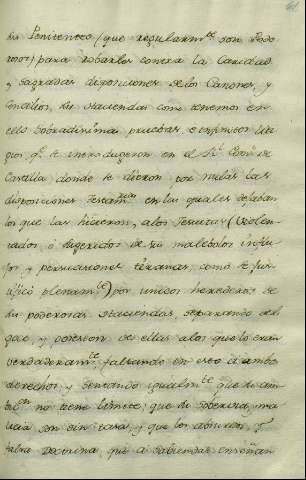 sus Penitentes (que regularm.te son Podo
rosos) para robarles contra la Caridad
y sagradas disposiciones de los Canones, y
Concilios, sus Haciendas como tenemos en
ello sobradisimas pruebas, e infinitos liti
gios q.e se introdugeron en el R.l Cons.o de
Castilla donde se dieron por nulas las
disposiciones testam.rias en las quales dejaban
los que las hicieron, a los Jesuitas (violen
tados ó sugeridos de sus malebolos influ
jos y persuasiones tiranas como se jus
tificó plenam.te) por unicos herederos de
sus poderosas Haciendas, separando del
goze, y posesion de ellas a los que lo eran
verdaderam.te faltando en esto a ambos
derechos, y sentando igualm.te que su am
bic.on no tiene limite; que su soberbia, ma
licia son sin tasa, y que los absurdos, y
falsa doctrina, que a sabiendas enseñan